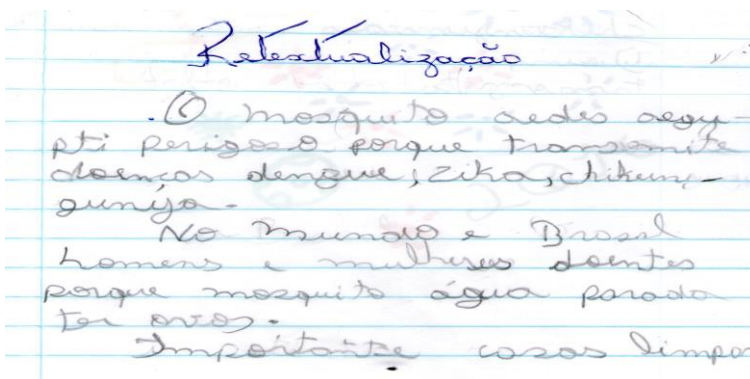 Retextualização
.O mosquito aedes aegy-
pti perigoso porque transmite
doenças dengue, zika, chikun-
gunya.
No mundo e Brasil
homens e mulheres doentes
porque mosquito água parada
ter ovos.
Importante casas limpa